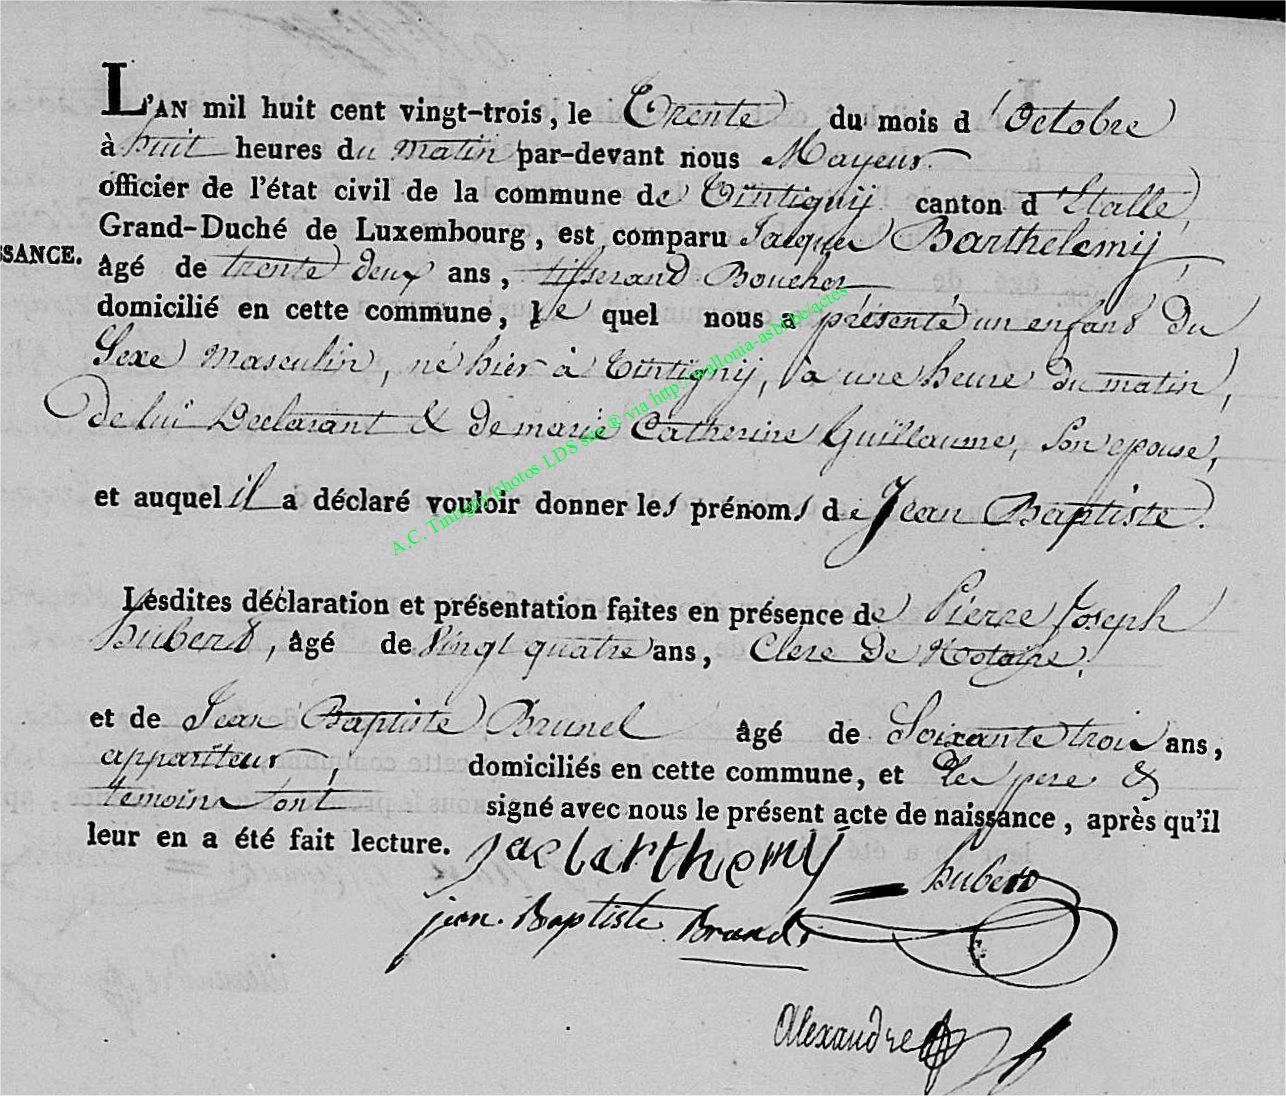 L'AN mil huit cent vingt-trois, le Trente du mois d'Octobre
à huit heures du matin par-devant nous Mayeur
officier de l'état civil de la commune de Tintignij canton d'Etalle,
Grand-Duché de Luxembourg, est comparu Jacques Barthelemij,
SSANCE.
âgé de trente deux ans, tisserand Boucher
domicilié en cette commune, le quel nous a présenté un enfant du
Sexe masculin, né hier à Tintignij, à une heure du matin,
de lui Declarant & de marie Catherine Guillaume, son epouse,
et auquel il a déclaré vouloir donner les prénoms de Jean Baptiste.
Lesdites déclaration et présentation faites en présence de Pierre Joseph
hubert, âgé de vingt quatre ans, Clerc de Notaire,
et de Jean Baptiste Brunel âgé de Soixante trois ans,
appariteur, domiciliés en cette commune, et les pere &
temoins ont signé avec nous le présent acte de naissance, après qu'il
leur en a été fait lecture. Jacbarthemy hubert
jean. Baptiste
Alexandre
A.C. Tintigny photos LDS site ® via http://wallonia-asbl.be/actes